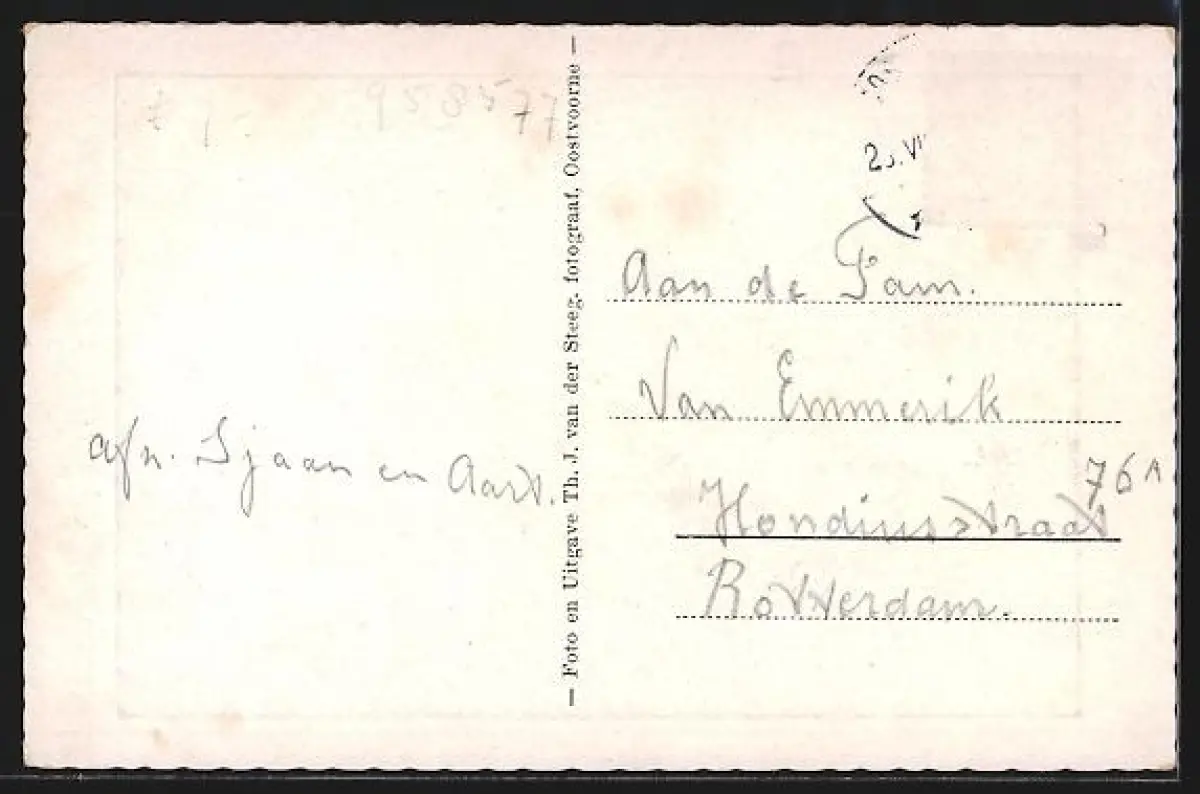 958577
afn. Sjaan en Aart.
— Foto en Uitgave Th. J. van der Steeg. fotograaf, Oostvoorne —
Aan de Fam.
Van Emmerik
Hondiusstraat 76A
Rotterdam.